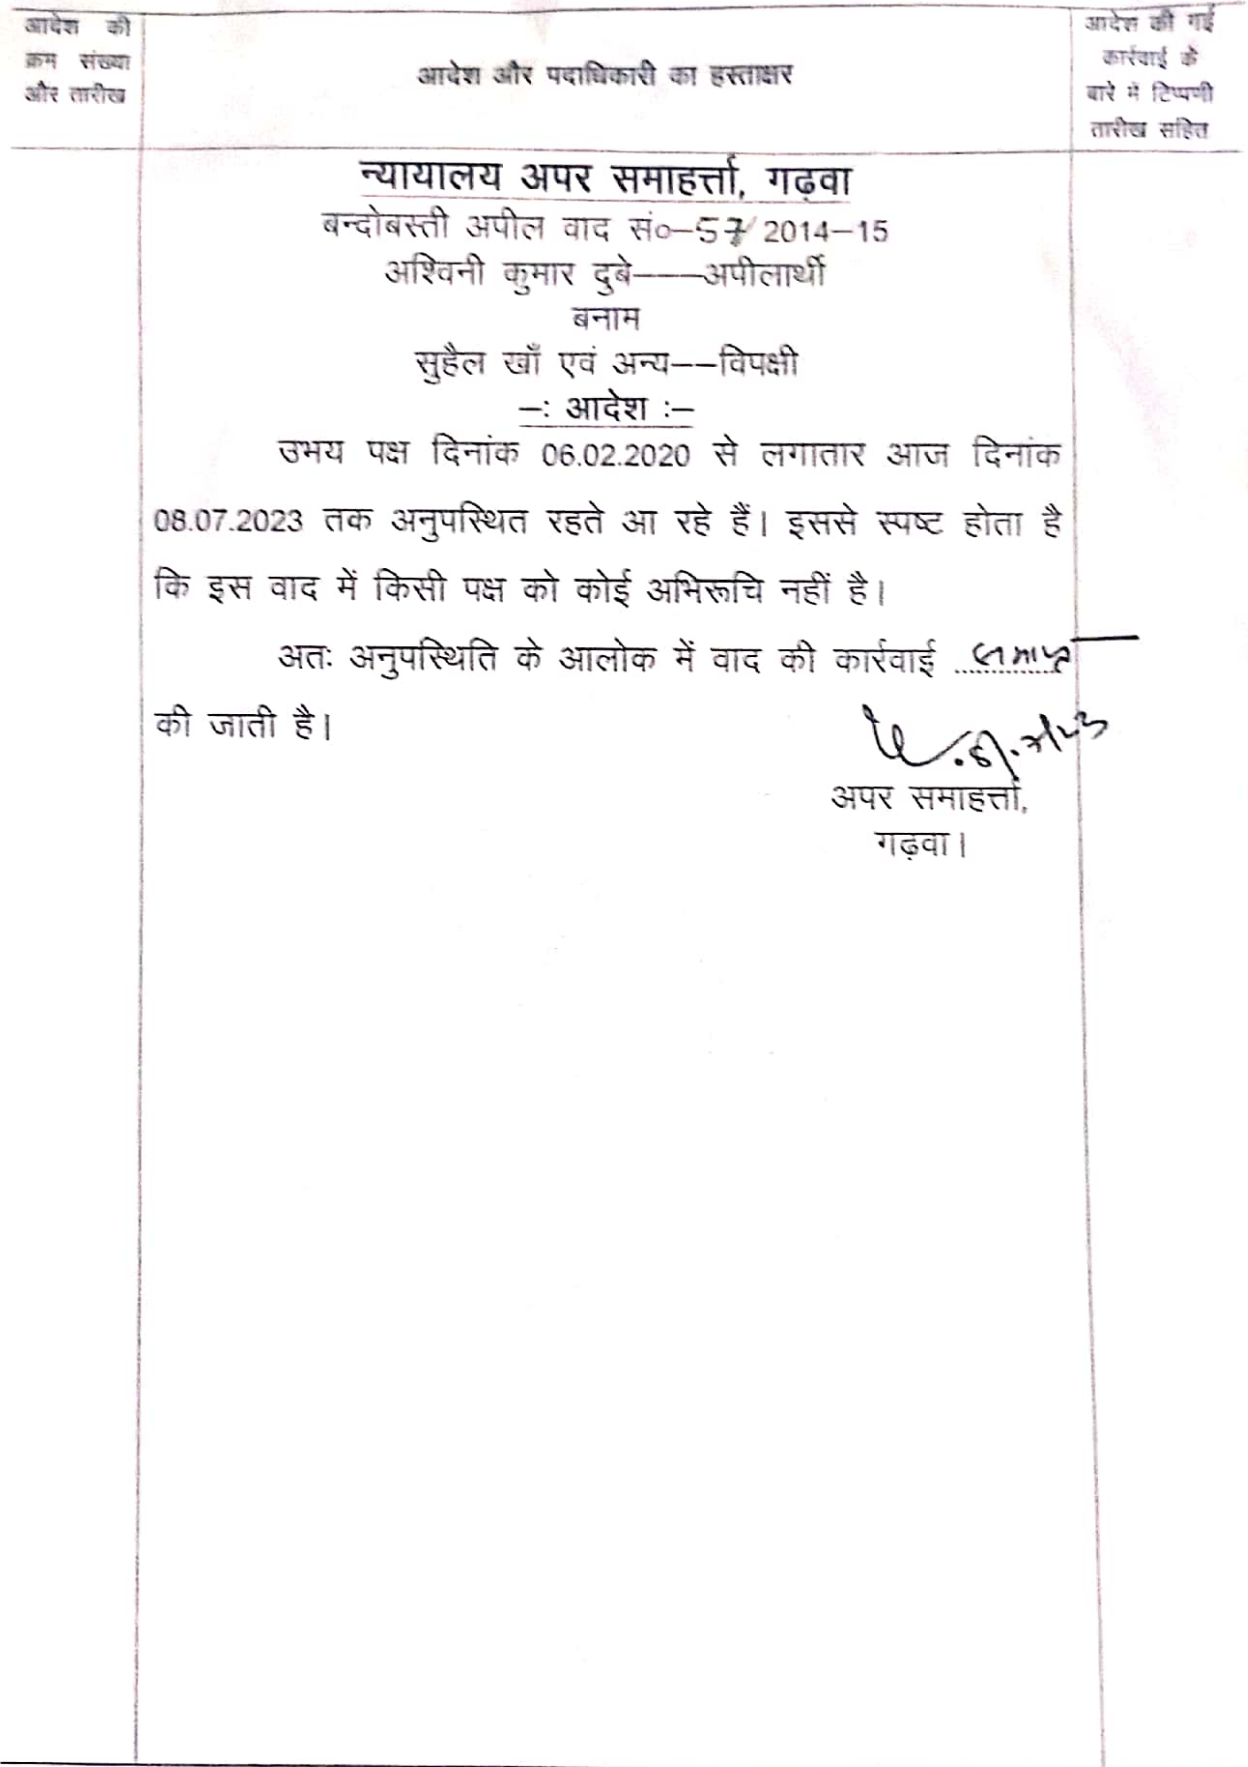 आदेश की
क्रम संख्या
और तारीख
आदेश और पदाधिकारी का हस्ताक्षर
आदेश की गई
कार्रवाई के
बारे में टिप्पणी
तारीख सहित
न्यायालय अपर समाहर्त्ता, गढ़वा
बन्दोबस्ती अपील वाद सं०–57/2014–15
अश्विनी कुमार दुबे–––अपीलार्थी
बनाम
सुहैल खाँ एवं अन्य––विपक्षी
–: आदेश :–
उभय पक्ष दिनांक 06.02.2020 से लगातार आज दिनांक
08.07.2023 तक अनुपस्थित रहते आ रहे हैं। इससे स्पष्ट होता है
कि इस वाद में किसी पक्ष को कोई अभिरूचि नहीं है।
अतः अनुपस्थिति के आलोक में वाद की कार्रवाई समाप्त
की जाती है।
अपर समाहर्त्ता,
गढ़वा।